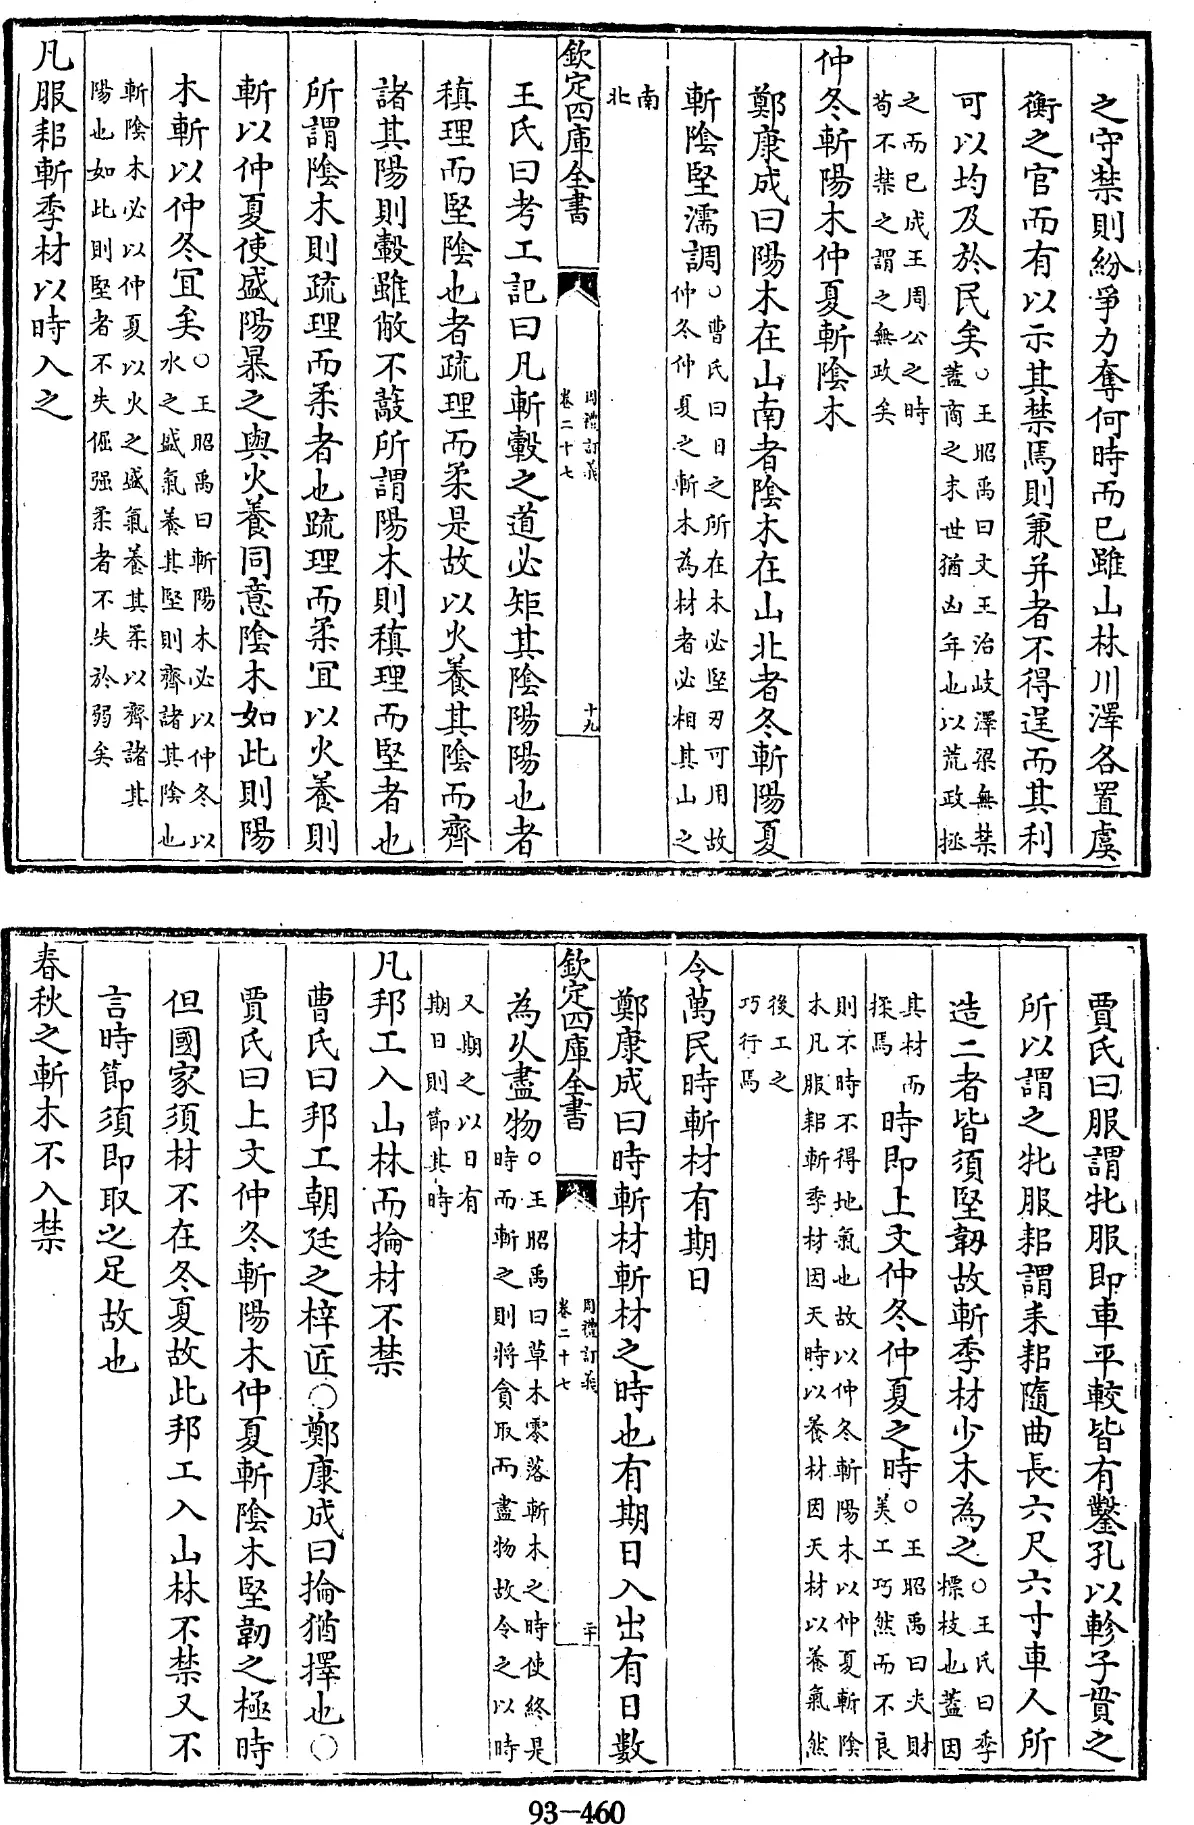 之守禁則紛爭力奪何時而已雖山林川澤各置虞
衡之官而有以示其禁焉則兼并者不得逞而其利
可以均及於民矣○王昭禹曰文王治岐澤梁無禁
蓋商之末世猶凶年也以荒政拯
之而已成王周公之時
苟不禁之謂之無政矣
仲冬斬陽木仲夏斬陰木
鄭康成曰陽木在山南者陰木在山北者冬斬陽夏
斬陰堅濡調○曹氏曰日之所在木必堅刃可用故
仲冬仲夏之斬木為材者必相其山之
南
北
欽定四庫全書
周禮訂義
卷二十七
十九
王氏曰考工記曰凡斬轂之道必矩其陰陽陽也者
稹理而堅陰也者疏理而柔是故以火養其陰而齊
諸其陽則轂雖敝不藃所謂陽木則稹理而堅者也
所謂陰木則疏理而柔者也疏理而柔宜以火養則
斬以仲夏使盛陽暴之與火養同意陰木如此則陽
木斬以仲冬宜矣○王昭禹曰斬陽木必以仲冬以
水之盛氣養其堅則齊諸其陰也
斬陰木必以仲夏以火之盛氣養其柔以齊諸其
陽也如此則堅者不失倔强柔者不失於弱矣
凡服耜斬季材以時入之
賈氏曰服謂牝服即車平較皆有鑿孔以軫子貫之
所以謂之牝服耜謂耒耜隨曲長六尺六寸車人所
造二者皆須堅韌故斬季材少木為之○王氏曰季
標枝也蓋因
其材而
探焉
時即上文仲冬仲夏之時○王昭禹曰夫財
美工巧然而不良
則不時不得地氣也故以仲冬斬陽木以仲夏斬陰
木凡服耜斬季材因天時以養材因天材以養氣然
後工之
巧行焉
令萬民時斬材有期日
鄭康成曰時斬材斬材之時也有期日入出有日數
欽定四庫全書
周禮訂義
卷二十七
二十
為久盡物○王昭禹曰草木零落斬木之時使終是
時而斬之則將貪取而盡物故令之以時
又期之以日有
期日則節其時
凡邦工入山林而掄材不禁
曹氏曰邦工朝廷之梓匠○鄭康成曰掄猶擇也○
賈氏曰上文仲冬斬陽木仲夏斬陰木堅韌之極時
但國家須材不在冬夏故此邦工入山林不禁又不
言時節須即取之足故也
春秋之斬木不入禁
93-460